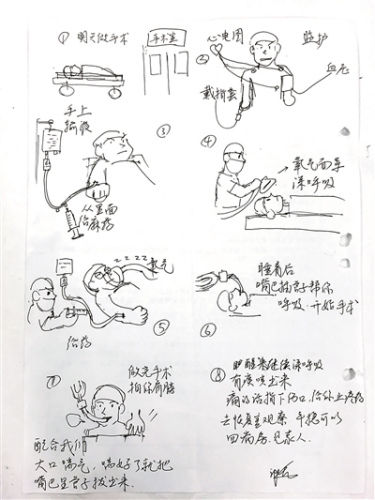 ① 明天做手术
手术室
② 心电图
监护
血压
戴指套
③ 手上
输液
从里面
给麻药
④ 氧气面罩
深呼吸
⑤ zzzz 氧气
给药
⑥ 睡着后
嘴巴插管子帮你
呼吸.开始手术
⑦ 做完手术
拍你肩膀
配合我们
大口喘气,喘好了就把
嘴巴里管子拔出来.
⑧ 即醒来继续深呼吸
有痰咳出来
痛的话指下伤口,给你止疼药
去恢复室观察 平稳可以
回病房.见家人.